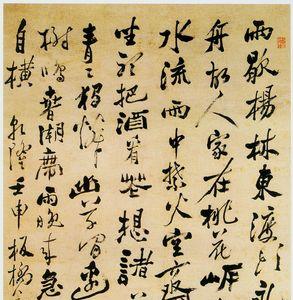 雨歇楊林東渡頭
舟故人家在桃花岸
水流雨中禁火空齋
坐聽把酒看花想諸
青青獨憐幽草澗邊
樹鳴春潮帶雨晚来急
自橫 乾隆壬申板橋